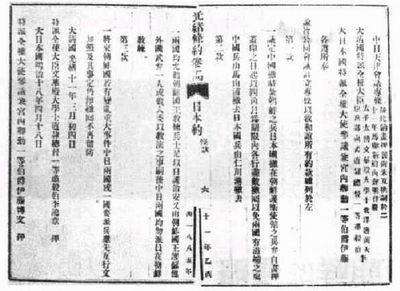 中日天津會議專條
大清國特派全權大臣
大日本國特派全權大使參議兼宮內卿勳一等伯爵伊藤
各遵所奉
諭旨公同會議訂立專條以敦和誼所有約款臚列於左
第一款
一議定中國撤駐紮朝鮮之兵日本國撤在朝鮮護衛使館之兵弁自畫押
蓋印之日起以四個月為期限內各行盡數撤回以免兩國有滋端之虞
中國兵由馬山浦撤去日本國兵由仁川港撤去
第二款
光緒條約卷
日本約
六
十一年乙酉
西一八八五
一兩國均允勸朝鮮國王教練兵士足以自護治安又由朝鮮國王選僱他
外國武弁一人或數人委以教演之事嗣後中日兩國均勿派員在朝鮮
教練
第三款
一將來朝鮮國若有變亂重大事件中日兩國或一國要派兵應先互行文
知照及其事定仍即撤回不再留防
大清國光緒十一年三月初四日
特派全權大臣文華殿大學士直隸總督一等肅毅伯李鴻章 押
大日本國明治十八年四月十八日
特派全權大使參議兼宮內卿勳一等伯爵伊藤博文 押